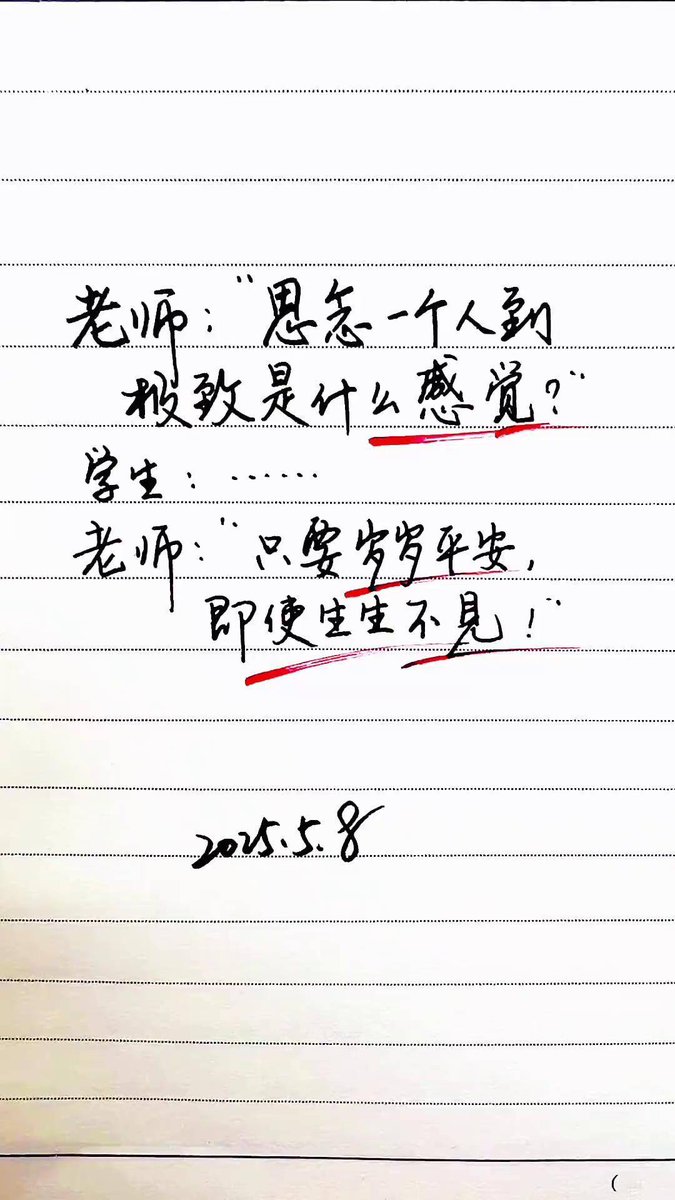 老师：“思念一个人到
极致是什么感觉？”
学生：……
老师：“只要岁岁平安，
即使生生不见！”
2025.5.8
(